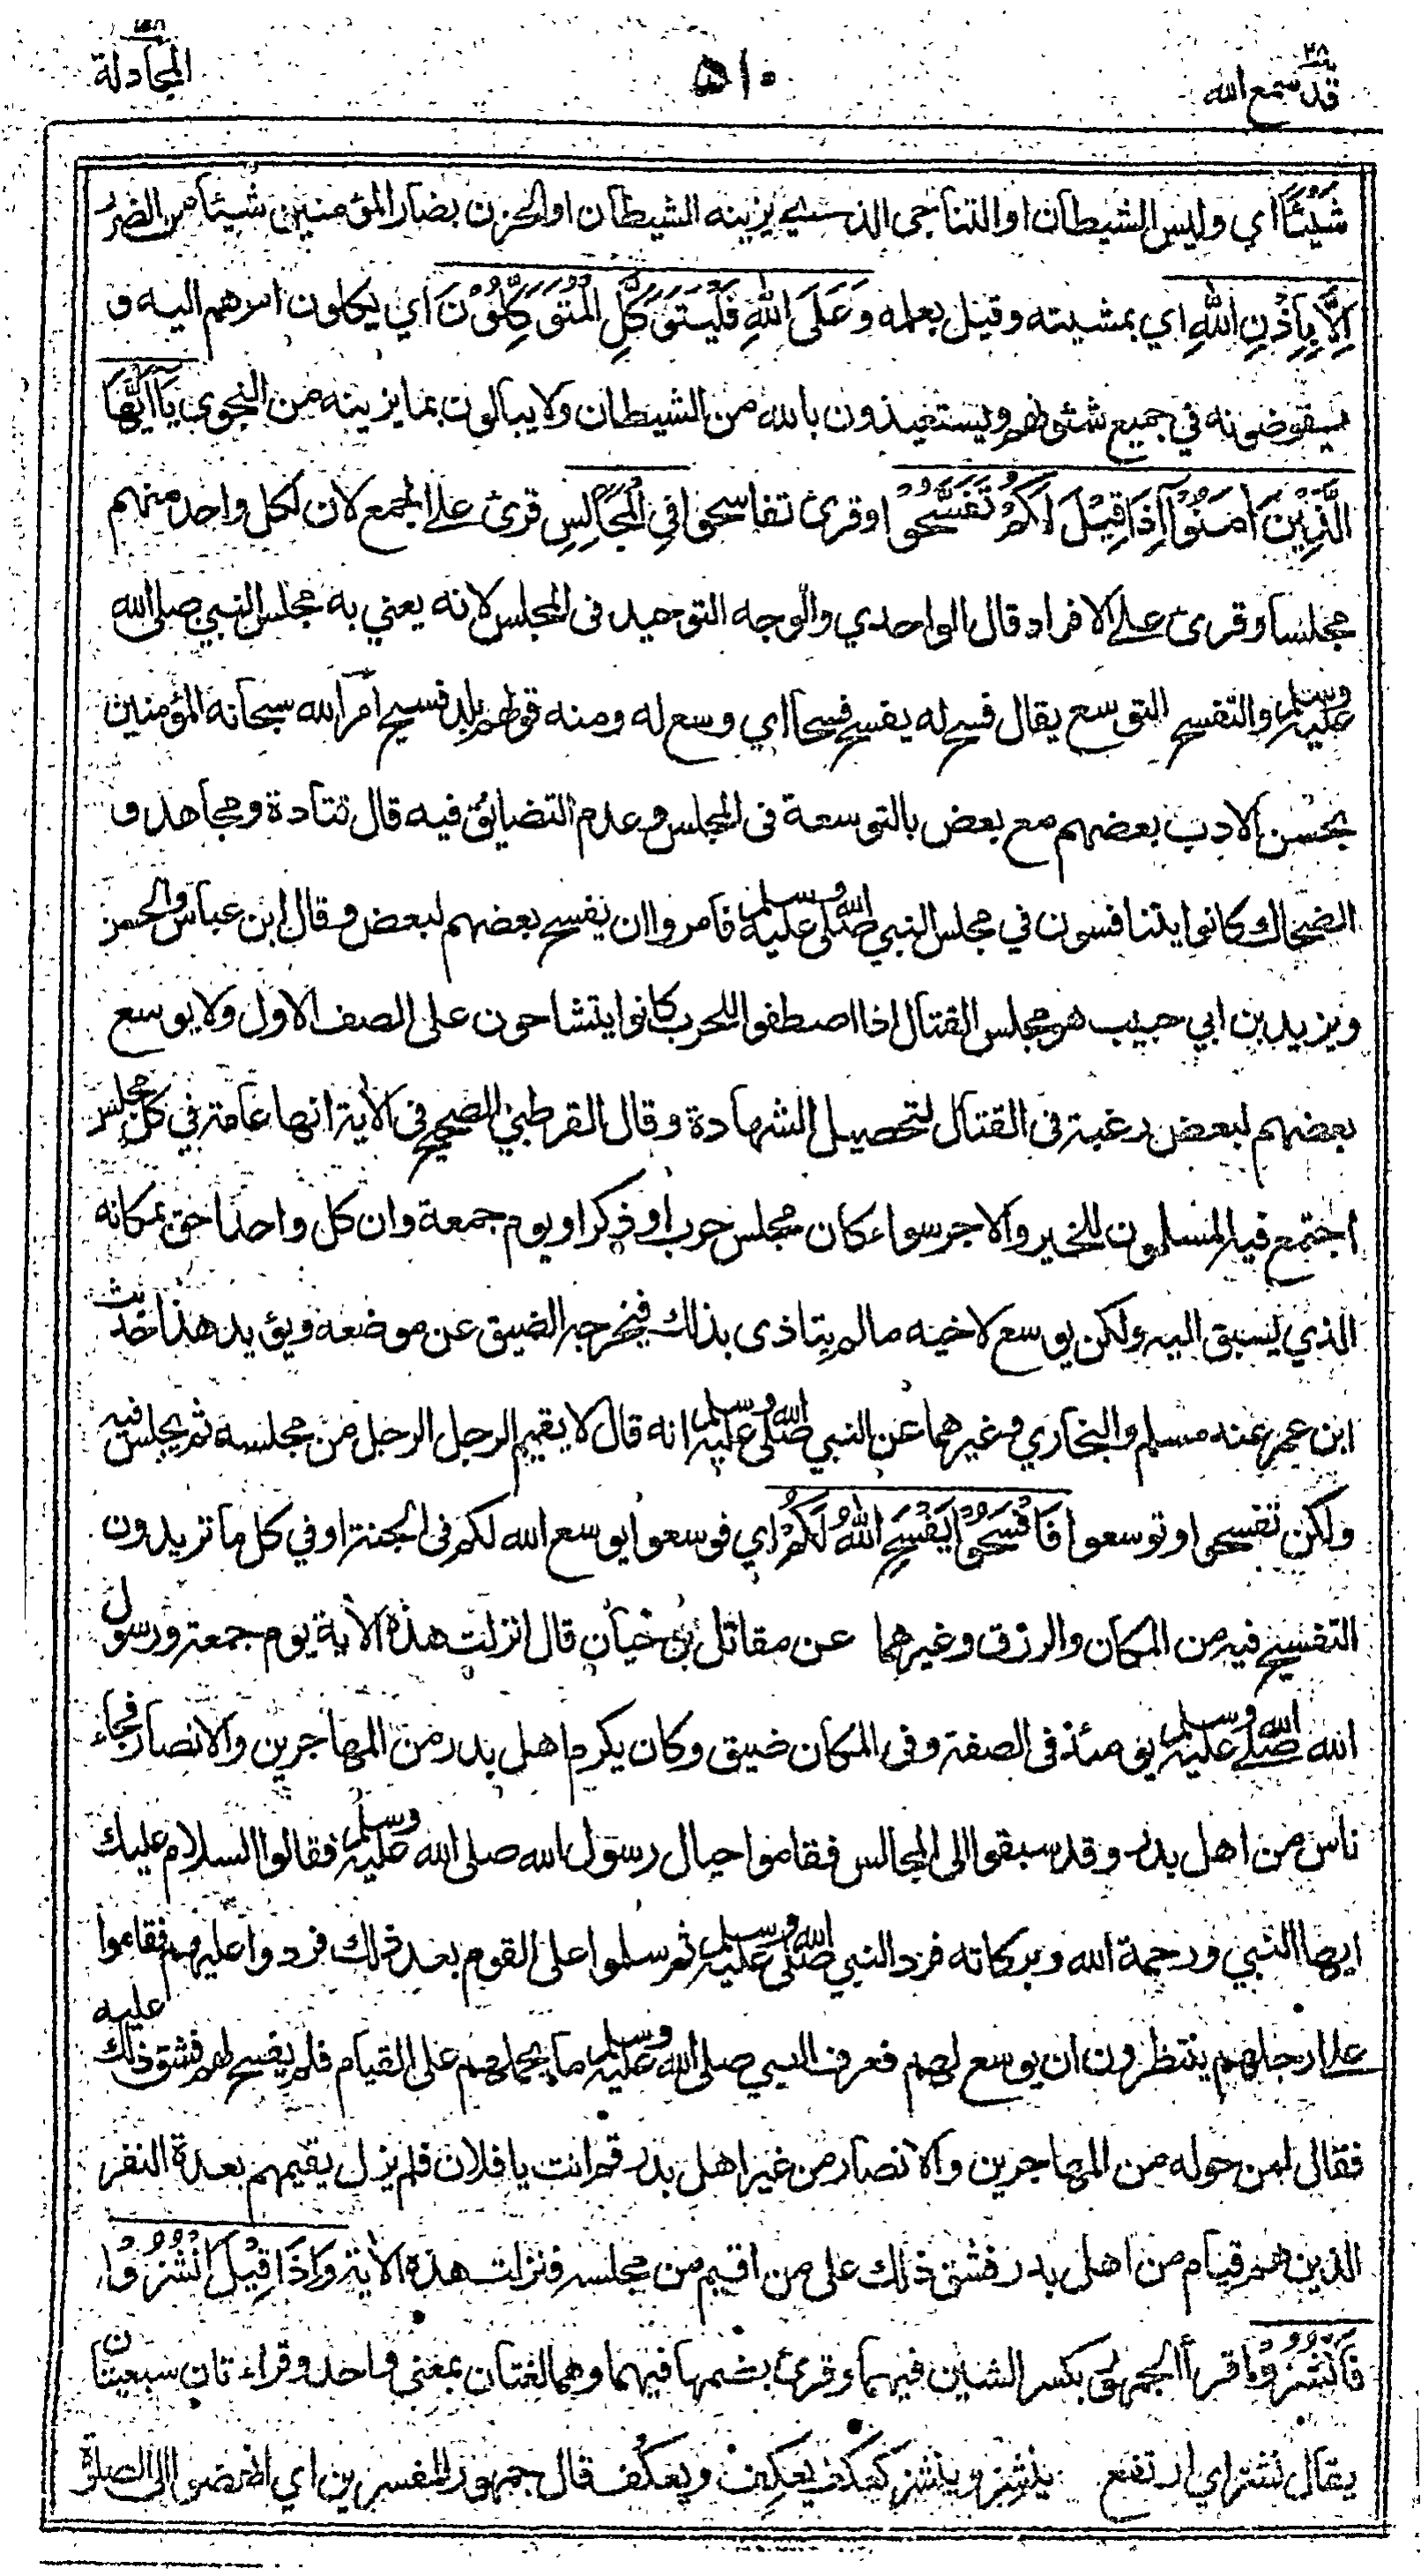 ٢٨
قد سمع الله
٥١٠
٥٨
المجادلة
شَيْئًا اي وليس الشيطان او التناجى الذي يزينه الشيطان او الحزن بضار المؤمنين شيئا من الضرر
اِلَّا بِاِذْنِ اللّٰهِ اي بمشيته وقيل بعلمه وَعَلَى اللّٰهِ فَلْيَتَوَكَّلِ الْمُتَوَكِّلُوْنَ اي يكلون امرهم اليه و
يفوضونه في جميع شئونهم ويستعيذون بالله من الشيطان ولا يبالون بما يزينه من النجوى يَآاَيُّهَا
الَّذِيْنَ اٰمَنُوْآ اِذَا قِيْلَ لَكُمْ تَفَسَّحُوْا وقرئ تفاسحوا فِي الْمَجَالِسِ قرئ على الجمع لان لكل واحد منهم
مجلسا وقرئ على الافراد قال الواحدي والوجه التوحيد فى المجلس لانه يعني به مجلس النبي صلى الله
عليه وسلم والتفسح التوسع يقال فسح له يفسح فسحا اي وسع له ومنه قولهم بلد فسيح امر الله سبحانه المؤمنين
بحسن الادب بعضهم مع بعض بالتوسعة فى المجلس وعدم التضائق فيه قال قتادة ومجاهد و
الضحاك كانوا يتنافسون في مجلس النبي صلى الله عليه وسلم فامروا ان يفسح بعضهم لبعض وقال ابن عباس والحسن
ويزيد بن ابي حبيب هو مجلس القتال اذا اصطفوا للحرب كانوا يتشاحون على الصف الاول ولا يوسع
بعضهم لبعض رغبة فى القتال لتحصيل الشهادة وقال القرطبي الصحيح فى الآية انها عامة في كل مجلس
اجتمع فيه المسلمون للخير والاجر سواء كان مجلس حرب او ذكر او يوم جمعة وان كل واحد احق بمكانه
الذي يسبق اليه ولكن يوسع لاخيه ما لم يتاذى بذلك فيخرجه الضيق عن موضعه ويؤيد هذا حديث
ابن عمر عند مسلم والبخاري وغيرهما عن النبي صلى الله عليه وسلم انه قال لا يقيم الرجل الرجل من مجلسه ثم يجلس فيه
ولكن تفسحوا وتوسعوا فَافْسَحُوْا يَفْسَحِ اللّٰهُ لَكُمْ اي فوسعوا يوسع الله لكم فى الجنة او في كل ما تريدون
التفسح فيه من المكان والرزق وغيرهما عن مقاتل بن حيان قال انزلت هذه الآية يوم جمعة ورسول
الله صلى الله عليه وسلم يومئذ فى الصفة وفى المكان ضيق وكان يكرم اهل بدر من المهاجرين والانصار فجاء
ناس من اهل بدر وقد سبقوا الى المجالس فقاموا حيال رسول الله صلى الله عليه وسلم فقالوا السلام عليك
ايها النبي ورحمة الله وبركاته فرد النبي صلى الله عليه وسلم ثم سلموا على القوم بعد ذلك فردوا عليهم فقاموا
على ارجلهم ينتظرون ان يوسع لهم فعرف النبي صلى الله عليه وسلم ما يحملهم على القيام فلم يفسح لهم فشق ذلك عليه
فقال لمن حوله من المهاجرين والانصار من غير اهل بدر قم انت يا فلان فلم يزل يقيمهم بعدة النفر
الذين هم قيام من اهل بدر فشق ذلك على من اقيم من مجلسه فنزلت هذه الآية وَاِذَا قِيْلَ انْشُزُوْا
فَانْشُزُوْا قرأ الجمهور بكسر الشين فيهما وقرئ بضمها فيهما وهما لغتان بمعنى واحد وقراءتان سبعيتان
يقال نشز اي ارتفع ينشِز وينشُز كعكف يعكِف ويعكُف قال جمهور المفسرين اي انهضوا الى الصلوة